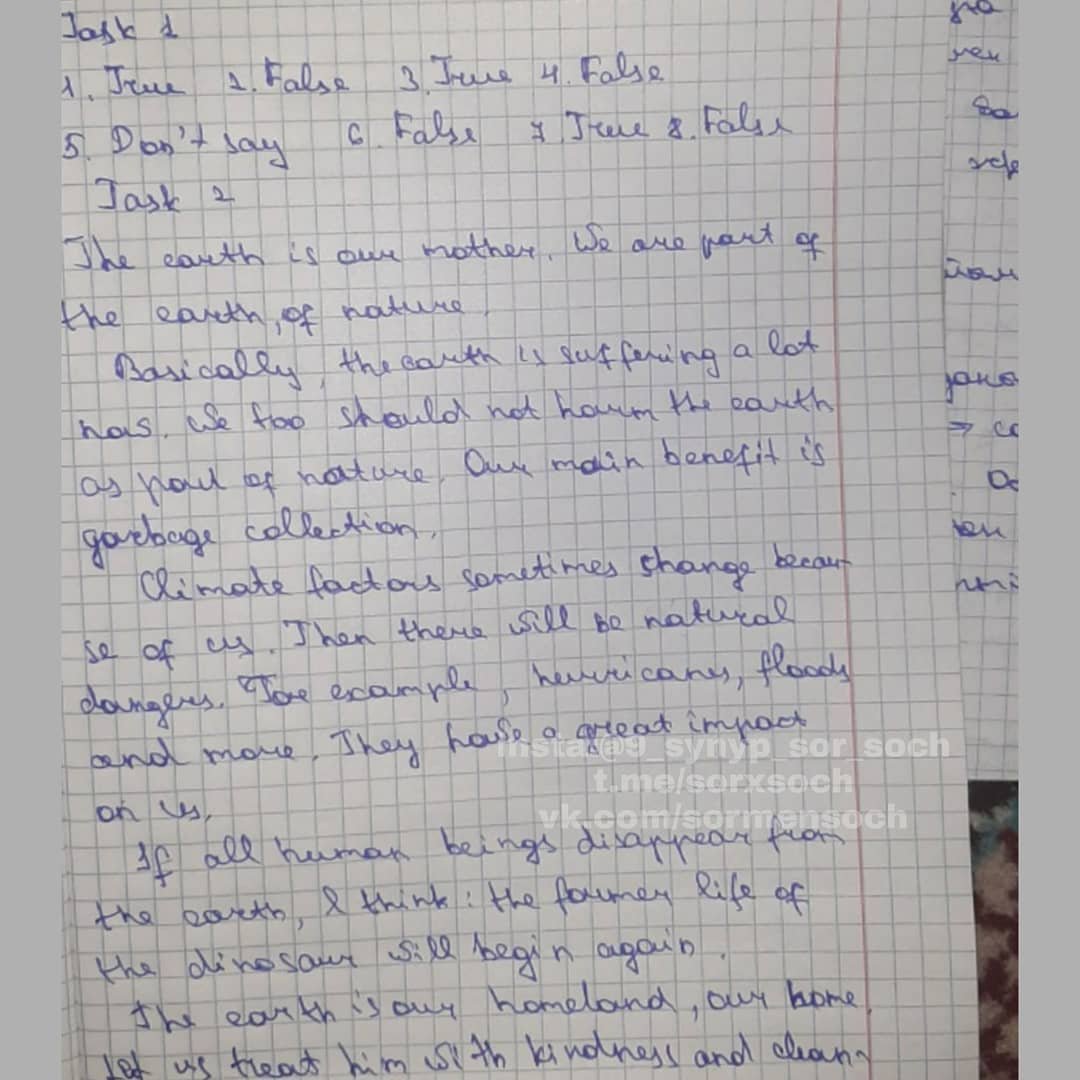 Task 1
1. True 2. False 3. True 4. False
5. Don't say 6. False 7. True 8. False
Task 2
The earth is our mother. We are part of
the earth, of nature.
Basically, the earth is suffering a lot
has. We too should not harm the earth
as part of nature. Our main benefit is
garbage collection.
Climate factors sometimes shange becau-
se of us. Then there will be natural
dangers. For example, hurricans, floods
and more. They have a great impact
on us.
insta:@9_synyp_sor_soch
t.me/sorxsoch
vk.com/sormansoch
If all human beings disappear from
the earth, I think: the former life of
the dinosaur will begin again.
The earth is our homeland, our home.
Let us treat him with kindness and clean-